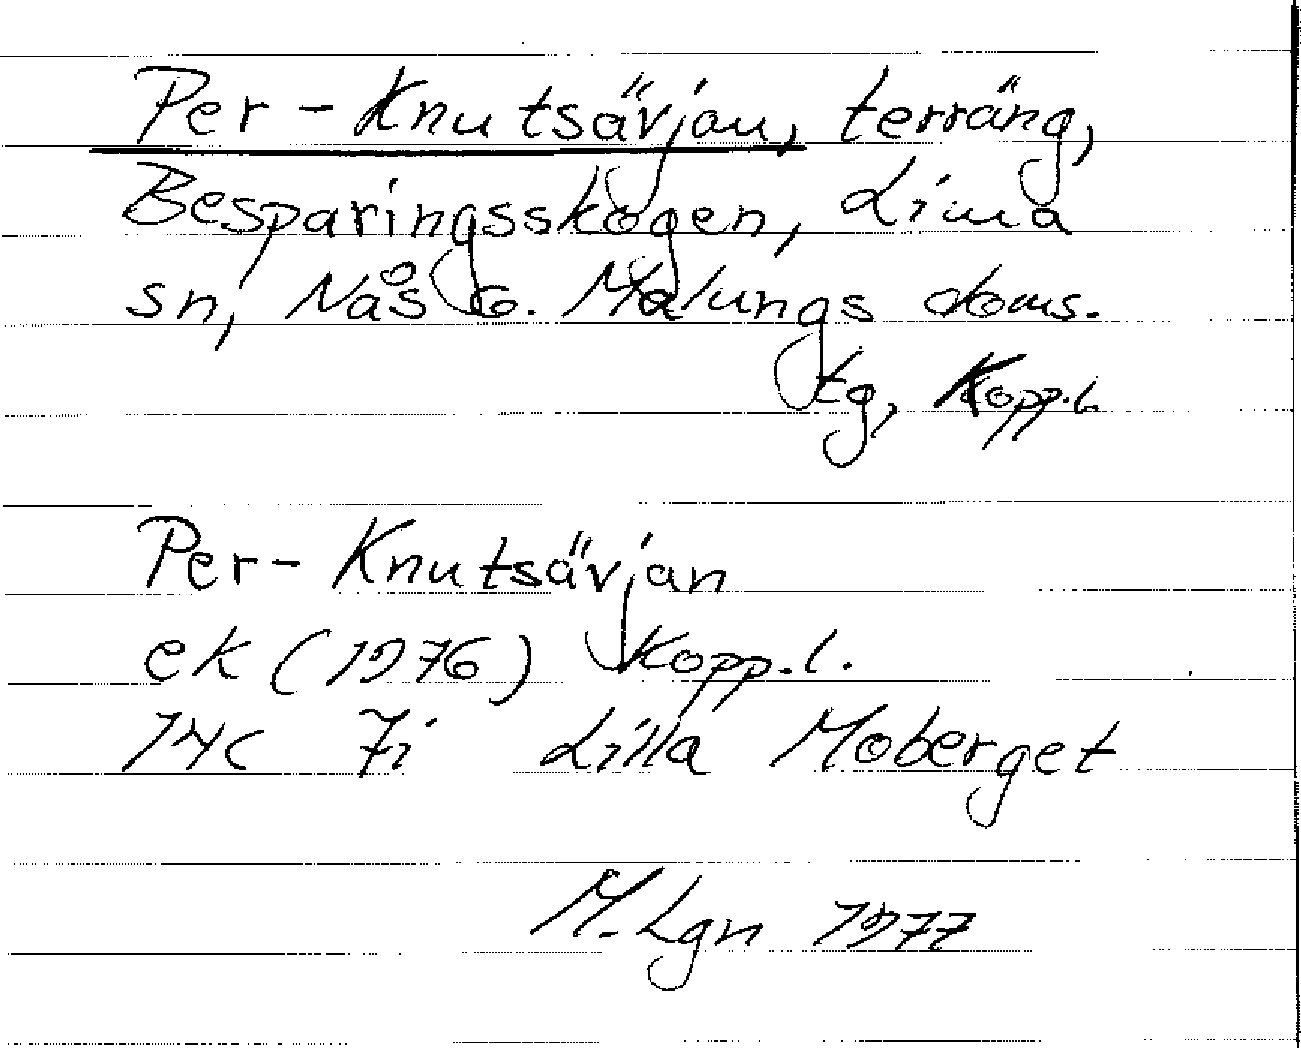 Per-Knutsävjan, terräng,
Besparingsskogen, Lima
sn, Nås o. Malungs doms.
tg, Kopp.l.
Per-Knutsävjan
ek (1976) Kopp.l.
14C 7i Lilla Moberget
M. Lgn 1977